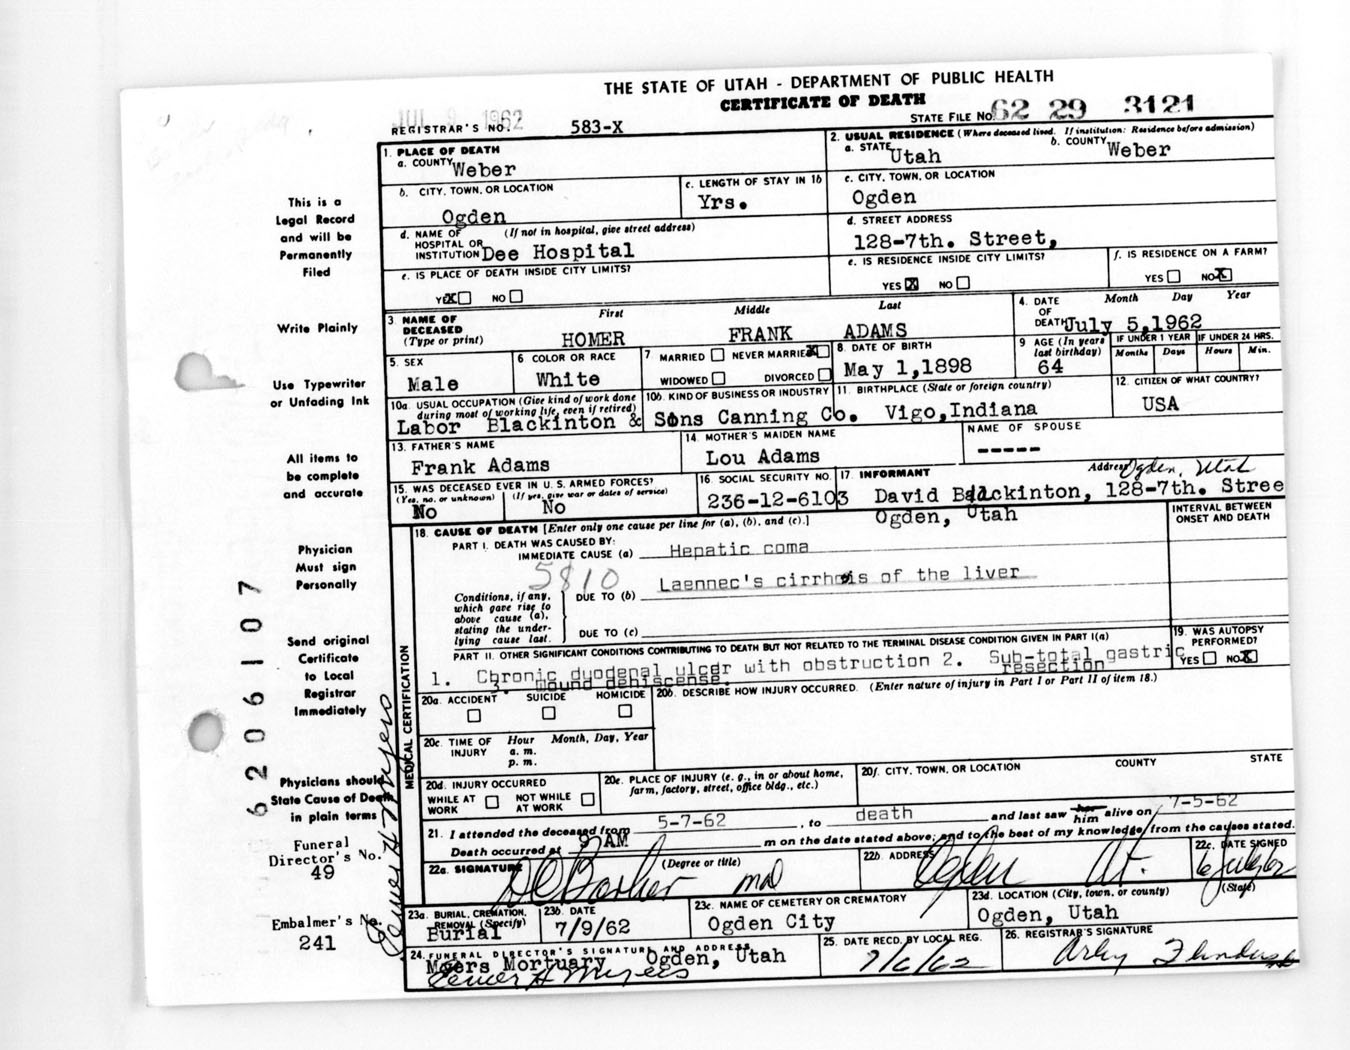 THE STATE OF UTAH - DEPARTMENT OF PUBLIC HEALTH
CERTIFICATE OF DEATH
JUL 9 1962
REGISTRAR'S NO. 583-X
STATE FILE NO. 62 29 3121
1. PLACE OF DEATH
a. COUNTY Weber
2. USUAL RESIDENCE (Where deceased lived. If institution: Residence before admission)
a. STATE Utah b. COUNTY Weber
b. CITY, TOWN, OR LOCATION
Ogden
c. LENGTH OF STAY IN 1b
Yrs.
c. CITY, TOWN, OR LOCATION
Ogden
d. NAME OF HOSPITAL OR INSTITUTION (If not in hospital, give street address)
Dee Hospital
d. STREET ADDRESS
128-7th. Street,
e. IS PLACE OF DEATH INSIDE CITY LIMITS?
YES X NO
e. IS RESIDENCE INSIDE CITY LIMITS?
YES X NO
f. IS RESIDENCE ON A FARM?
YES NO X
3 NAME OF DECEASED (Type or print)
First Middle Last
HOMER FRANK ADAMS
4. DATE OF DEATH Month Day Year
July 5,1962
5. SEX
Male
6 COLOR OR RACE
White
7 MARRIED NEVER MARRIED X
WIDOWED DIVORCED
8 DATE OF BIRTH
May 1,1898
9 AGE (In years last birthday)
64
IF UNDER 1 YEAR IF UNDER 24 HRS.
Months Days Hours Min.
10a. USUAL OCCUPATION (Give kind of work done during most of working life, even if retired)
Labor
10b. KIND OF BUSINESS OR INDUSTRY
Blackinton & Sons Canning Co.
11. BIRTHPLACE (State or foreign country)
Vigo,Indiana
12. CITIZEN OF WHAT COUNTRY?
USA
13. FATHER'S NAME
Frank Adams
14. MOTHER'S MAIDEN NAME
Lou Adams
NAME OF SPOUSE
-----
15. WAS DECEASED EVER IN U. S. ARMED FORCES?
(Yes, no, or unknown) (If yes, give war or dates of service)
No No
16. SOCIAL SECURITY NO.
236-12-6103
17. INFORMANT Address Ogden, Utah
David Blackinton, 128-7th. Stree
Ogden, Utah
18. CAUSE OF DEATH [Enter only one cause per line for (a), (b), and (c).]
INTERVAL BETWEEN ONSET AND DEATH
PART I. DEATH WAS CAUSED BY:
IMMEDIATE CAUSE (a) Hepatic coma
5810
Conditions, if any, which gave rise to above cause (a), stating the underlying cause last.
DUE TO (b) Laennec's cirrhosis of the liver
DUE TO (c)
PART II. OTHER SIGNIFICANT CONDITIONS CONTRIBUTING TO DEATH BUT NOT RELATED TO THE TERMINAL DISEASE CONDITION GIVEN IN PART I(a)
1. Chronic duodenal ulcer with obstruction 2. Sub-total gastric resection
3. wound dehiscense.
19. WAS AUTOPSY PERFORMED?
YES NO X
20a. ACCIDENT SUICIDE HOMICIDE
20b. DESCRIBE HOW INJURY OCCURRED. (Enter nature of injury in Part I or Part II of item 18.)
20c. TIME OF INJURY Hour Month, Day, Year
a. m.
p. m.
20d. INJURY OCCURRED
WHILE AT WORK NOT WHILE AT WORK
20e. PLACE OF INJURY (e. g., in or about home, farm, factory, street, office bldg., etc.)
20f. CITY, TOWN, OR LOCATION COUNTY STATE
21. I attended the deceased from 5-7-62, to death and last saw her him alive on 7-5-62
Death occurred at 9 AM m on the date stated above; and to the best of my knowledge, from the causes stated.
22a. SIGNATURE (Degree or title)
D C Barker MD
22b. ADDRESS
Ogden Ut.
22c. DATE SIGNED
6 July 62
23a. BURIAL, CREMATION, REMOVAL (Specify)
Burial
23b. DATE
7/9/62
23c. NAME OF CEMETERY OR CREMATORY
Ogden City
23d. LOCATION (City, town, or county) (State)
Ogden, Utah
24. FUNERAL DIRECTOR'S SIGNATURE AND ADDRESS
Myers Mortuary Ogden, Utah
Elmer H Myers
25. DATE RECD. BY LOCAL REG.
7/6/62
26. REGISTRAR'S SIGNATURE
MEDICAL CERTIFICATION
This is a
Legal Record
and will be
Permanently
Filed
Write Plainly
Use Typewriter
or Unfading Ink
All items to
be complete
and accurate
Physician
Must sign
Personally
Send original
Certificate
to Local
Registrar
Immediately
Physicians should
State Cause of Death
in plain terms
Funeral
Director's No.
49
Embalmer's No.
241
Elmer H Myers
6206107